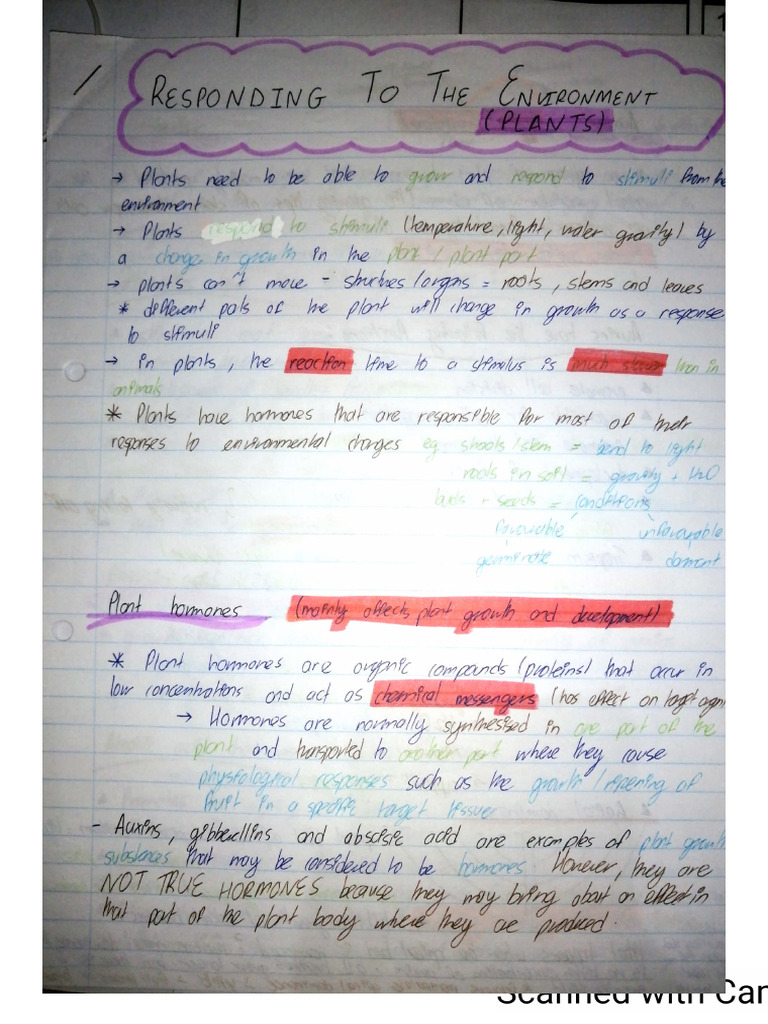 RESPONDING TO THE ENVIRONMENT
(PLANTS)
→ Plants need to be able to grow and respond to stimuli from the
environment
→ Plants respond to stimuli (temperature, light, water gravity) by
a change in growth in the plant / plant part
→ plants can't move - structures/organs = roots, stems and leaves
* different pats of the plant will change in growth as a response
to stimuli
→ in plants, the reaction time to a stimulus is much slower than in
animals
* Plants have hormones that are responsible for most of their
responses to environmental changes eg. shoots/stem = bend to light
roots in soil = gravity + H2O
buds + seeds = conditions
favourable unfavourable
germinate domant
Plant hormones (mainly affects plant growth and development)
* Plant hormones are organic compounds (proteins) that occur in
low concentrations and act as chemical messengers (has effect on target organ
→ Hormones are normally synthesised in one part of the
plant and transported to another part where they cause
physiological responses such as the growth / ripening of
fruit in a specific target tissue
- Auxins, gibberellins and abscisic acid are examples of plant growth
substances that may be considered to be hormones. However, they are
NOT TRUE HORMONES because they may bring about an effect in
that part of the plant body where they are produced.
Scanned with Cam